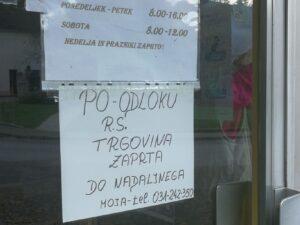 PONEDELJEK - PETEK 8.00-16.00
SOBOTA 8.00-12.00
NEDELJA IN PRAZNIKI ZAPRTO!
PO-ODLOKU
R.S.
TRGOVINA
ZAPRTA
DO NADALJNEGA
MOJA-tel. 031-242-350